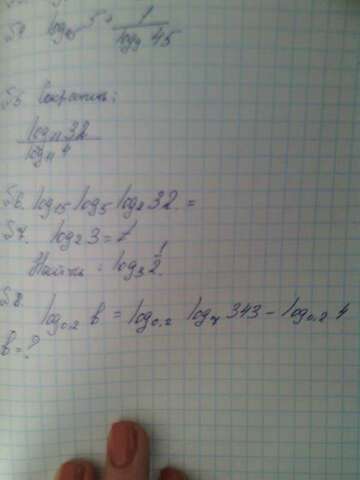 54. log₄₅ 5 + 1/log₉ 45
55. Сократить:
log₁₁ 32
log₁₁ 4
56. log₂₅ log₅ log₂ 32 =
57. log₂ 3 = 1
Найти: log₃ 2
58.
log₀,₂ b = log₀,₂ log₇ 343 - log₀,₂ 4
b = ?